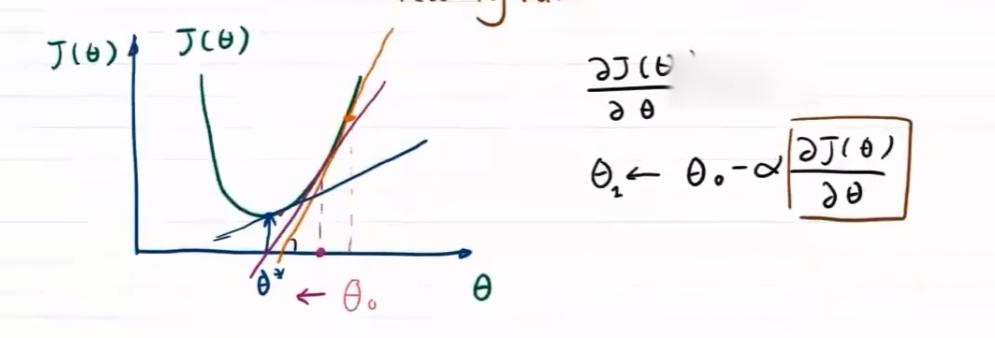 J(θ)
J(θ)
θ*
← θ₀
θ
∂J(θ
∂θ
θ₁ ← θ₀ - α ∂J(θ)
∂θ